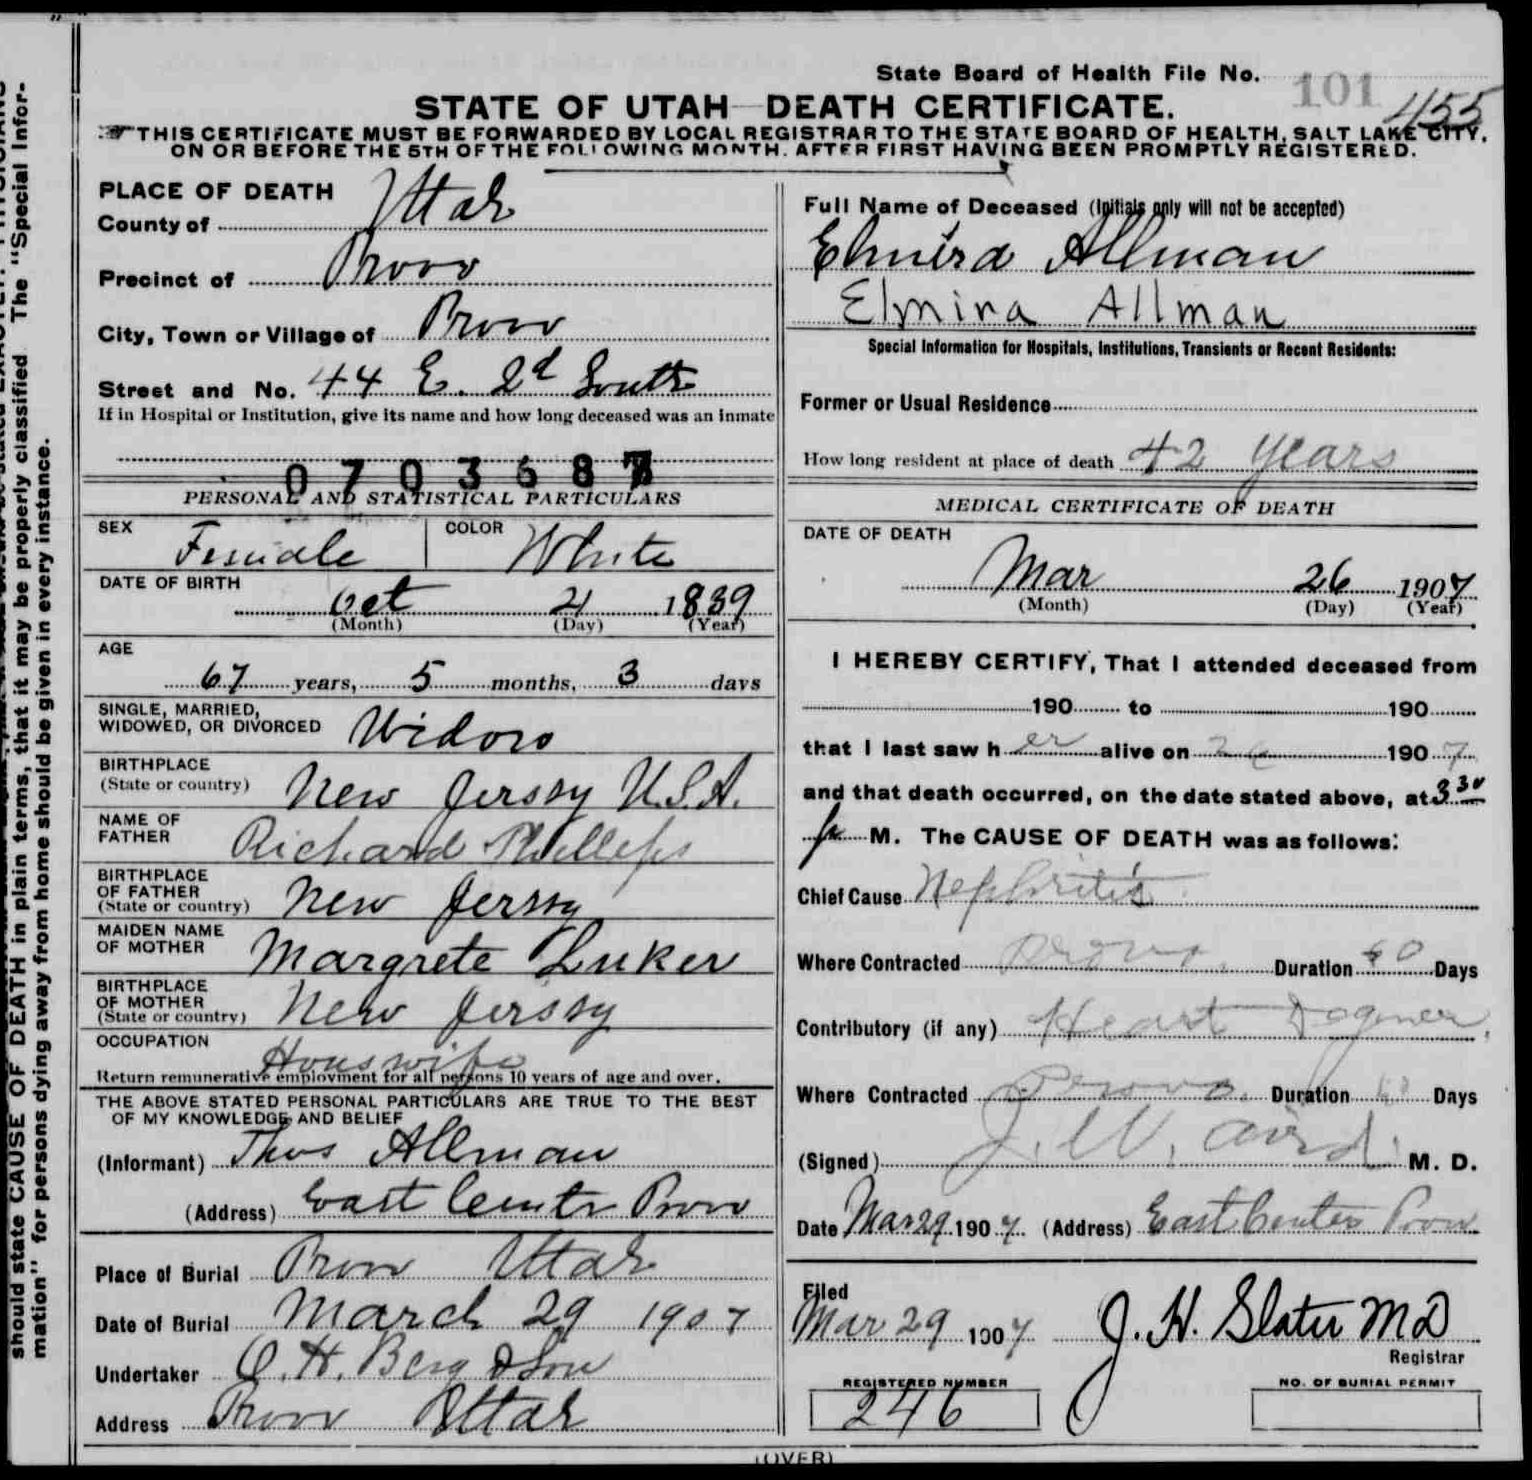 State Board of Health File No. 101
455
STATE OF UTAH—DEATH CERTIFICATE.
THIS CERTIFICATE MUST BE FORWARDED BY LOCAL REGISTRAR TO THE STATE BOARD OF HEALTH, SALT LAKE CITY,
ON OR BEFORE THE 5TH OF THE FOLLOWING MONTH, AFTER FIRST HAVING BEEN PROMPTLY REGISTERED.
should state CAUSE OF DEATH in plain terms, that it may be properly classified The "Special Infor-
mation" for persons dying away from home should be given in every instance.
PLACE OF DEATH
County of Utah
Precinct of Provo
City, Town or Village of Provo
Street and No. 44 E. 2d South
If in Hospital or Institution, give its name and how long deceased was an inmate
PERSONAL AND STATISTICAL PARTICULARS
SEX Female COLOR White
DATE OF BIRTH
Oct 21 1839
(Month) (Day) (Year)
AGE
67 years, 5 months, 3 days
SINGLE, MARRIED,
WIDOWED, OR DIVORCED Widow
BIRTHPLACE
(State or country) New Jerssy U.S.A.
NAME OF
FATHER Richard Phillips
BIRTHPLACE
OF FATHER
(State or country) New Jerssy
MAIDEN NAME
OF MOTHER Margrete Luker
BIRTHPLACE
OF MOTHER
(State or country) New Jerssy
OCCUPATION
Houswife
Return remunerative employment for all persons 10 years of age and over.
THE ABOVE STATED PERSONAL PARTICULARS ARE TRUE TO THE BEST
OF MY KNOWLEDGE AND BELIEF
(Informant) Thos Allman
(Address) East Center Provo
Place of Burial Provo Utah
Date of Burial March 29 1907
Undertaker O. H. Berg & Son
Address Provo Utah
Full Name of Deceased (Initials only will not be accepted)
Elmira Allman
Elmina Allman
Special Information for Hospitals, Institutions, Transients or Recent Residents:
Former or Usual Residence
How long resident at place of death 42 years
MEDICAL CERTIFICATE OF DEATH
DATE OF DEATH
Mar 26 1907
(Month) (Day) (Year)
I HEREBY CERTIFY, That I attended deceased from
190 to 190
that I last saw her alive on 26 1907
and that death occurred, on the date stated above, at 3 30
p M. The CAUSE OF DEATH was as follows:
Chief Cause Nephritis
Where Contracted Provo. Duration 60 Days
Contributory (if any) Heart Degener.
Where Contracted Provo. Duration 60 Days
(Signed) J. W. Aird. M. D.
Date Mar 29 1907 (Address) East Center Provo
Filed
Mar 29 1907 J. H. Slater M D
Registrar
REGISTERED NUMBER
246
NO. OF BURIAL PERMIT
(OVER)